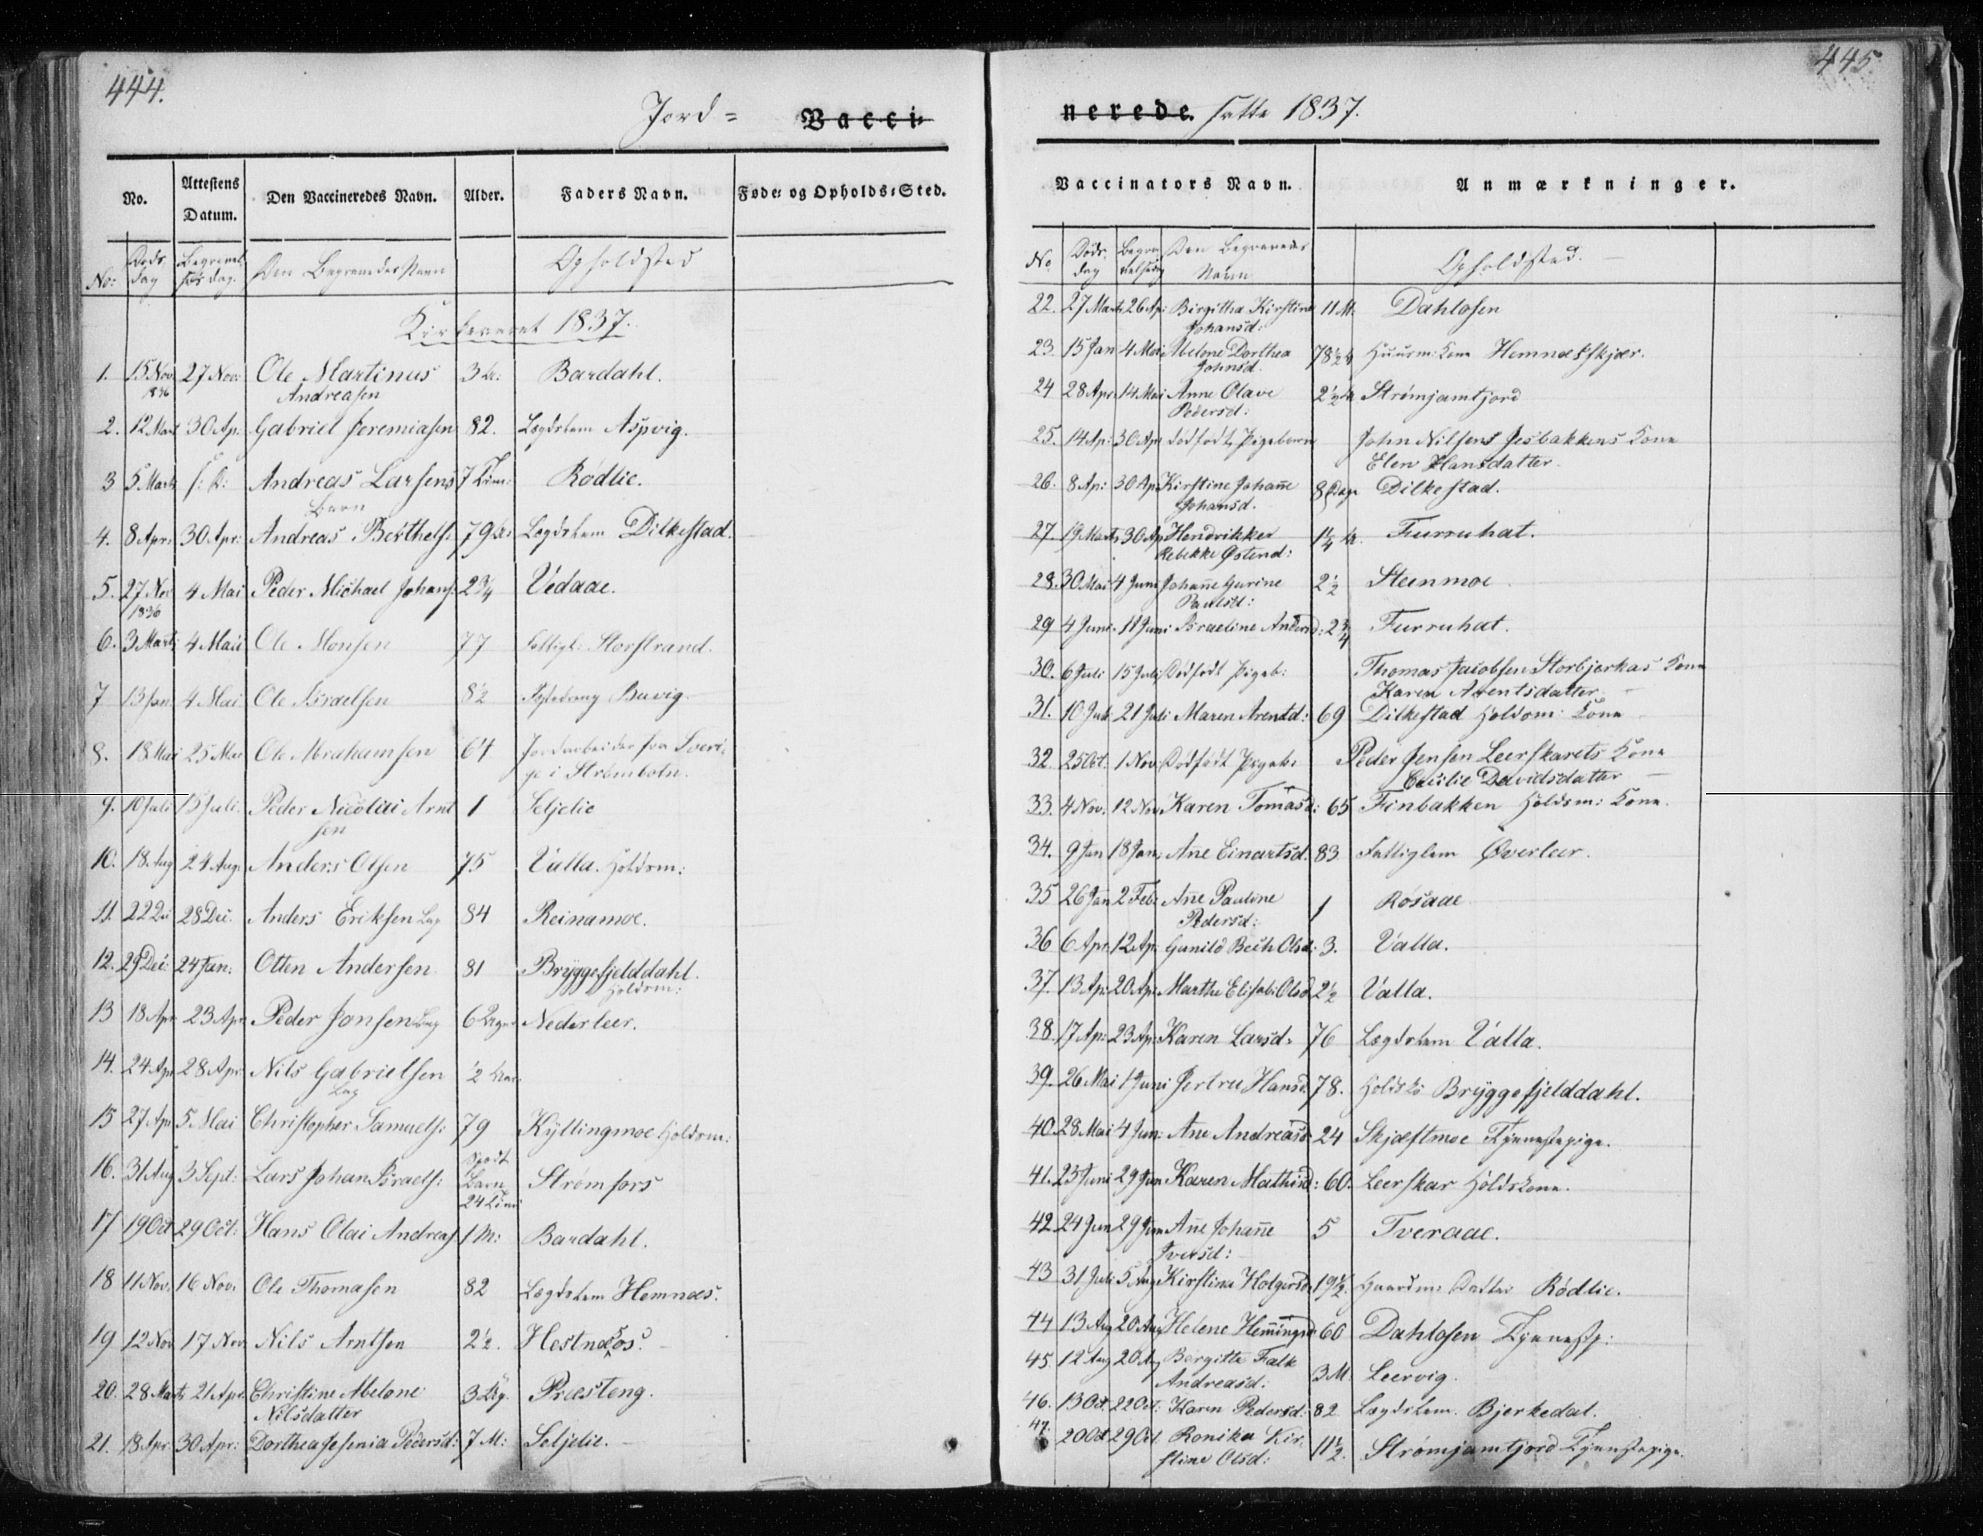 444.
Jord = Vacci-
No. Attestens Datum. Den Vaccineredes Navn. Alder. Faders Navn. Føde- og Opholds-Sted.
No: Døds dag Begravelses dag. Den Begravedes Navn Opholdsted
Kirkeaaret 1837.
1. 15 Nov. 27 Nov: Ole Martinus 3 Bardahl.
1836 Andreasen
2. 12 Mart 30 Ap. Gabriel Jeremiasen 82. Lægdslem Aspvig.
3 5 Marts Andreas Larsens 7 Rødlie.
Barn
4. 8 Apr: 30 Apr: Andreas Berthels: 79 Lægdslem Dilkestad.
5. 27 Nov 4 Mai Peder Michael Johans: 2 3/4 Vedaae.
1836
6. 3 Marts 4 Mai Ole Monsen 77 Fattigl: Storstrand.
7 13 Jan. 4 Mai Ole Israelsen 8 1/2 Bavig.
8. 18 Mai 25 Mai Ole Abrahamsen 64 Jordarbeider fra Sveri-
ge i Strømbotn.
9. 10 Juli 15 Juli. Peder Nicolai Arnt 1 Seljelie
sen
10. 18. Aug 24 Aug. Anders Olsen 75 Valla. Holdsm:
11. 22 De 28 Dec. Anders Eriksen Lap 84 Reinamoe.
12. 29 Dec: 24 Jan: Otten Andersen 81 Bryggefjelddahl.
Holdsm:
13 18 Apr 23 Apr Peder Jonsen Lap 6 Nederleer.
14. 24 Apr 28 Apr. Nils Gabrielsen 1/2
Lap
15 27 Apr 5 Mai Christopher Samuels: 79 Kyllingmoe Holdsm:
16. 31 Aug 3 Sept: Lars Johan Israels: Barn Strømfors
24
17 19 Oct 29 Oct: Hans Olai Andreas 1 M: Bardahl.
18 11 Nov. 16 Nov. Ole Thomasen 82 Lægdslem Hemnæs.
19 12 Nov 17 Nov Nils Arntsen 2 1/2. Hestnesos.
20. 28 Marts 21 Apr Christine Abelone 3 Præsteng.
Nilsdatter
21. 18 Apr. 30 Apr: Dorthea Jesenia Pedersd: 7 M: Seljelie.
445
nerede. satte 1837.
Vaccinators Navn. Anmærkninger.
No Døds dag Begravelsesdag Den Begravedes Navn Opholdsted.
22. 27 Marts 26 Ap: Birgitha Kirstine 11 M. Dahlosen
Johansd:
23. 15 Jan 4 Mai Abelone Dorthea 78 1/2 Huusm: Kone Hemnæsskjær.
Johnsd.
24 28 Apr 14 Mai Anne Olave 2 1/2 Strømjamtjord
Pedersd:
25. 14 Ap: 30 Apr dødfødt Pigebarn John Nilsens Jesbakkens Kone
Elen Hansdatter.
26. 8 Ap: 30 Ap: Kirstine Johane 8 Dage Dilkestad.
Johansd.
27. 19 Marts 30 Ap Hendrikke 1 1/4 Furruhat.
Rebekke Østend:
28. 30 Mai 4 Juni Johane Gurine 2 1/2 Steenmoe.
Paulsd:
29 4 Juni. 11 Juni Israeline Andersd: 2 3/4 Furruhat.
30. 6 Juli 15 Juli Dødfødt Pigeb: Thomas Jacobsen Storbjerkas Kone
Karen Arentsdatter
31. 10 Juli 21 Juli Maren Arentd: 69 Dilkestad Holdsm: Kone
32. 25 Oct. 1 Nov. Dødfødt Pigeb: Peder Jensen Leerskarets Kone
Cecilie Davidsdatter
33. 4 Nov. 12 Nov Karen Tomasd: 65 Finbakken Holdsm: Kone.
34. 9 Jan 18 Jan. Ane Einartsd. 83 Fattiglem Øverleer.
35 26 Jan 2 Feb: Ane Pauline 1 Røsaae
Pedersd:
36 6 Apr. 12 Ap: Gunild Beth Olsd: 3. Valla.
37. 13 Ap: 20 Ap: Marthe Elisab: Olsd 2 1/2 Valla.
38. 17 Ap: 23 Ap: Karen Larsd: 76 Lægdslem Valla.
39. 26 Mai 1 Juni Jertru Hansd. 78. Bryggefjelddahl.
40. 28 Mai 4 Jun: Ane Andreasd: 24 Skjæftmoe Tjenestepige.
41. 23 Juni 29 Jun Karen Mathisd: 60. Leerskar Holdskone.
42. 24 Jun 29 Jun Ane Johane 5 Tveraae.
Iversd:
43 31 Juli 5 Aug Kirstine Holgersd: 19 1/2. Gaardm: Datter Rødlie.
44 13 Aug 20 Aug Helene Hemingsd 60 Dahlosen Tjenestp:
45. 12 Aug 20 Ag Bergitte Falk 3 M. Leervig.
Andreasd:
46. 13 Oct 22 Oct. Karen Pedersd: 82 Lægdslem. Bjerkedal.
47. 20 Oct 29 Oct. Ronika Kir- 11 1/2. Strømjamtjord Tjenestepige.
stine Olsd: